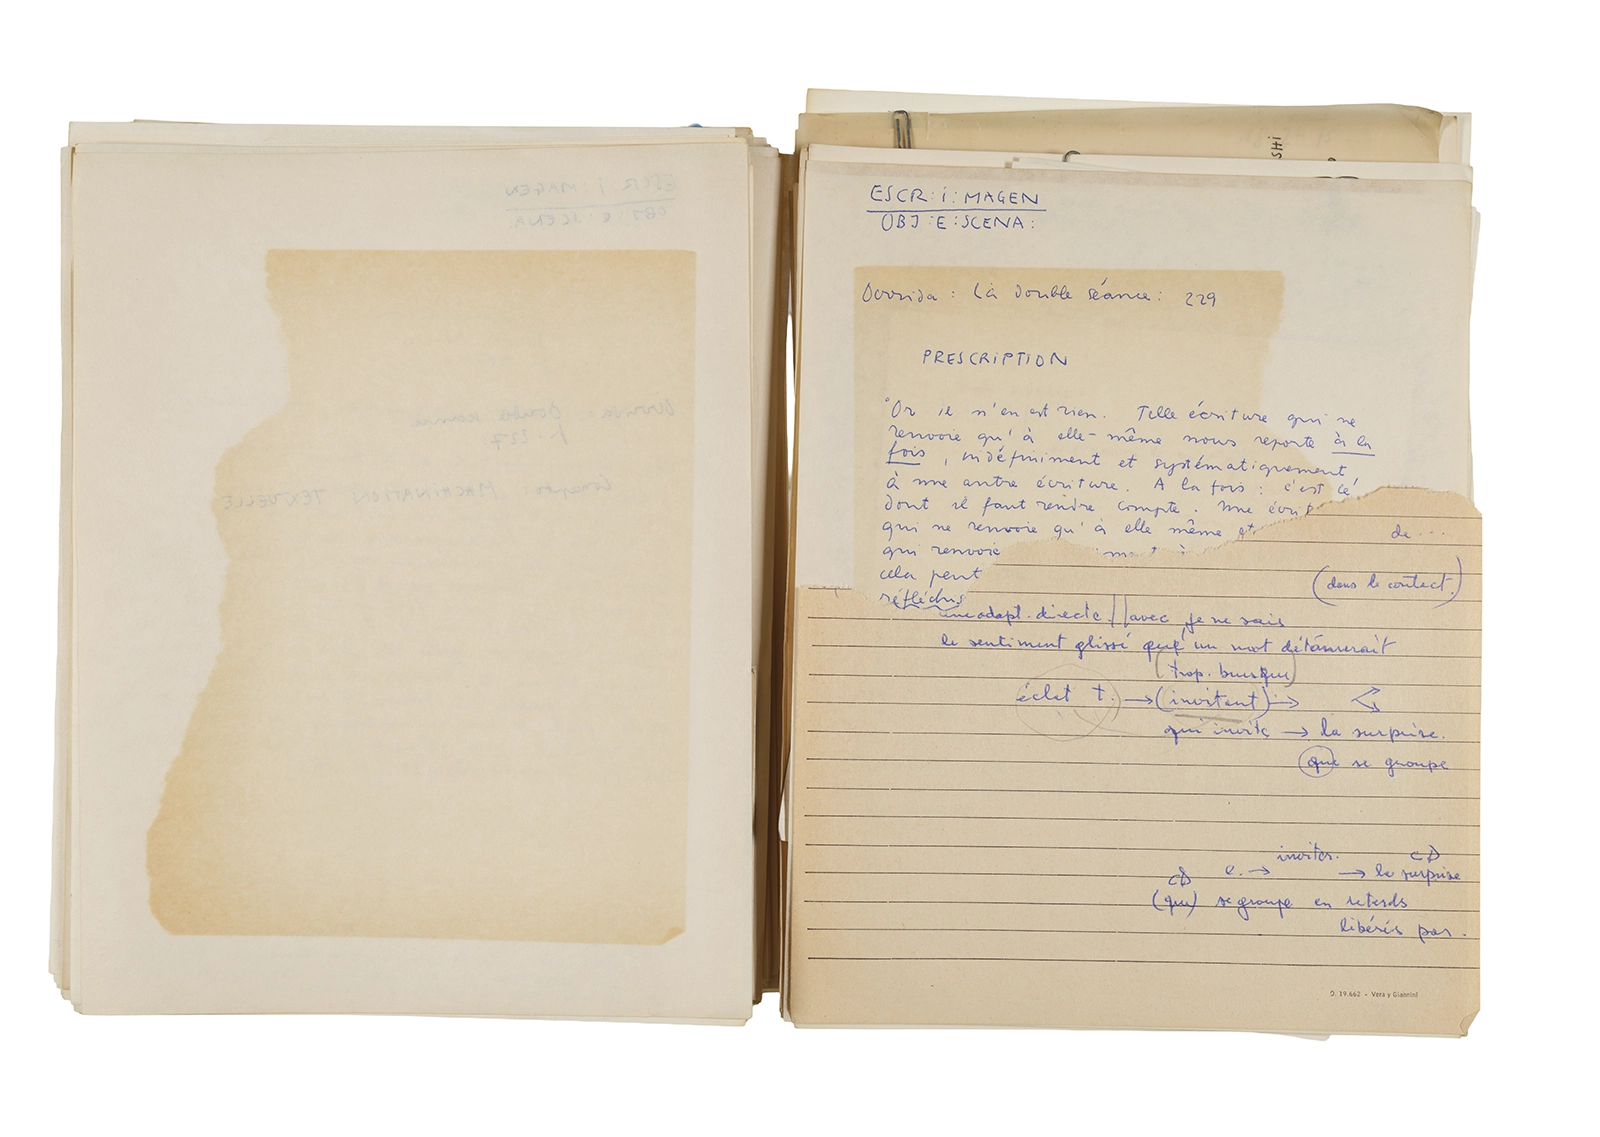 ESCR:i:MAGEN
OBJ:E:SCENA:
Derrida: Double séance
p. 227
Concepto: MACHINATION TEXTUELLE
SHi
ESCR:i:MAGEN
OBJ:E:SCENA:
Derrida: La double séance: 229
PRESCRiPTiON
"Or il n'en est rien. Telle écriture qui ne
renvoie qu'à elle-même nous reporte à la
fois, indéfiniment et systématiquement
à une autre écriture. A la fois: c'est ce
dont il faut rendre compte. Une écrit
qui ne renvoie qu'à elle même et
qui renvoie
cela peut
réfléchis
de...
(dans le contact.)
une adapt. directe. || avec je ne sais
le sentiment glissé qu'un mot
(trop. busqué)
éclat t. → (invitant) →
qui invite → la surprise.
que se groupe
inviter.
e. → → la surprise
(que) se groupe en retards
libérés par.
D. 19.662 - Vera y Giannini